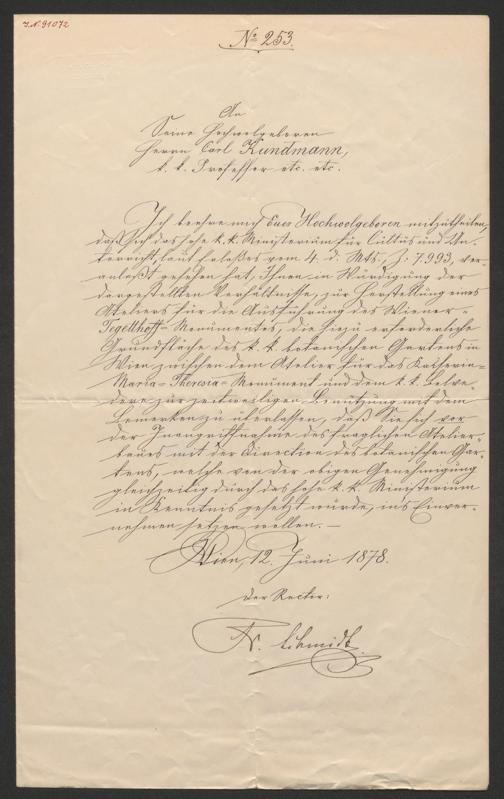 J.N. 91072
No 253.
An
Seine Hochwolgeboren
Herrn Carl Kundmann,
k. k. Professor etc. etc.
Ich beehre mich Euer Hochwolgeboren mitzutheilen,
daß sich das hohe k. k. Ministerium für Cultus und Un-
terricht, laut Erlaßes vom 4. d. Mts., Z. 7.993, ver-
anlaßt gesehen hat, Ihnen in Würdigung der
dargestellten Verhältnisse, zur Herstellung eines
Ateliers für die Ausführung des Wiener-
Tegetthoff-Monumentes, die hiezu erforderliche
Grundfläche des k. k. botanischen Gartens in
Wien zwischen dem Atelier für das Kaiserin-
Maria-Theresia-Monument und dem k. k. Belve-
dere zur zeitweiligen Benützung mit dem
Bemerken zu überlassen, daß Sie sich vor
der Inangriffnahme des fraglichen Atelier-
baues mit der Direction des botanischen Gar-
tens, welche von der obigen Genehmigung
gleichzeitig durch das hohe k. k. Ministerium
in Kenntnis gesetzt wurde, in's Einver-
nehmen setzen wollen. —
Wien, 12. Juni 1878.
Der Rector:
Fr. Schmidt